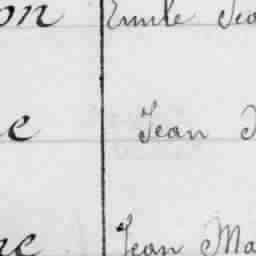 on Emile
e Jean
ne Jean Ma